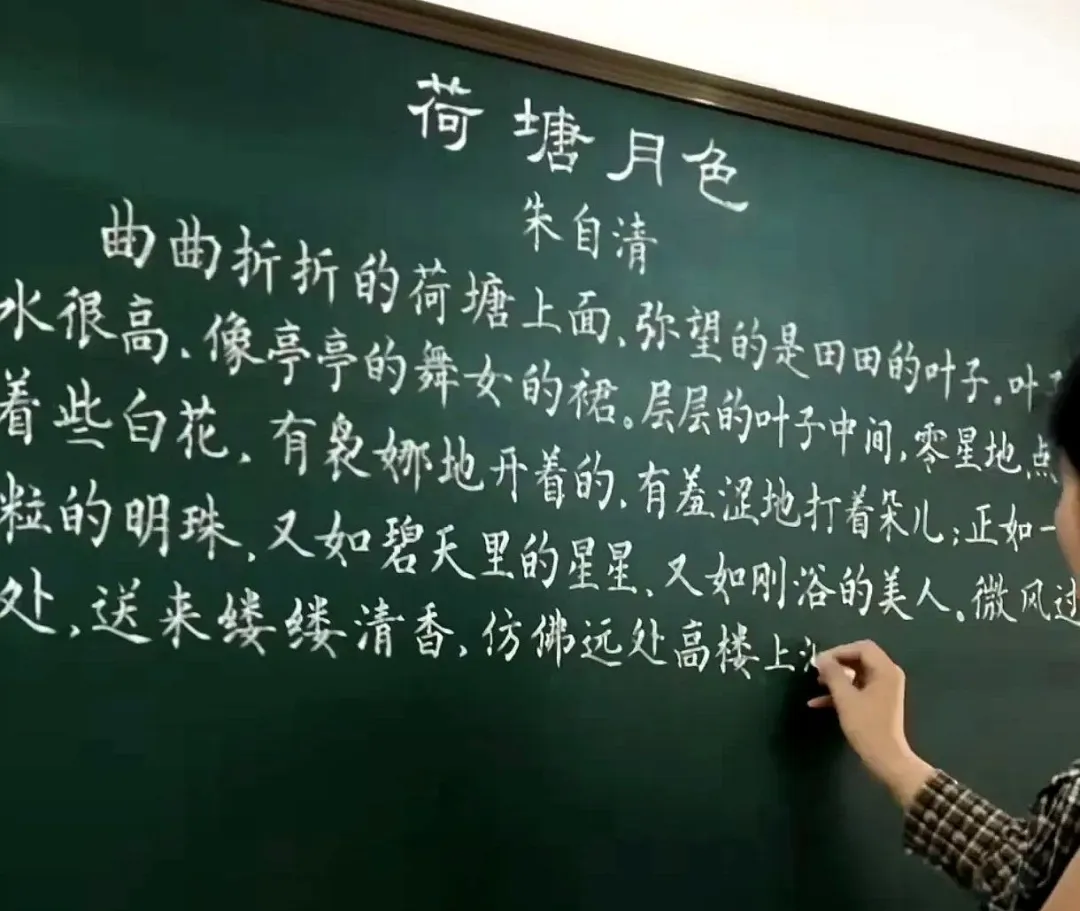 荷塘月色
朱自清
曲曲折折的荷塘上面、弥望的是田田的叶子。叶
水很高、像亭亭的舞女的裙。层层的叶子中间,零星地点
着些白花,有袅娜地开着的,有羞涩地打着朵儿;正如一
粒的明珠,又如碧天里的星星、又如刚浴的美人。微风过
处,送来缕缕清香,仿佛远处高楼上